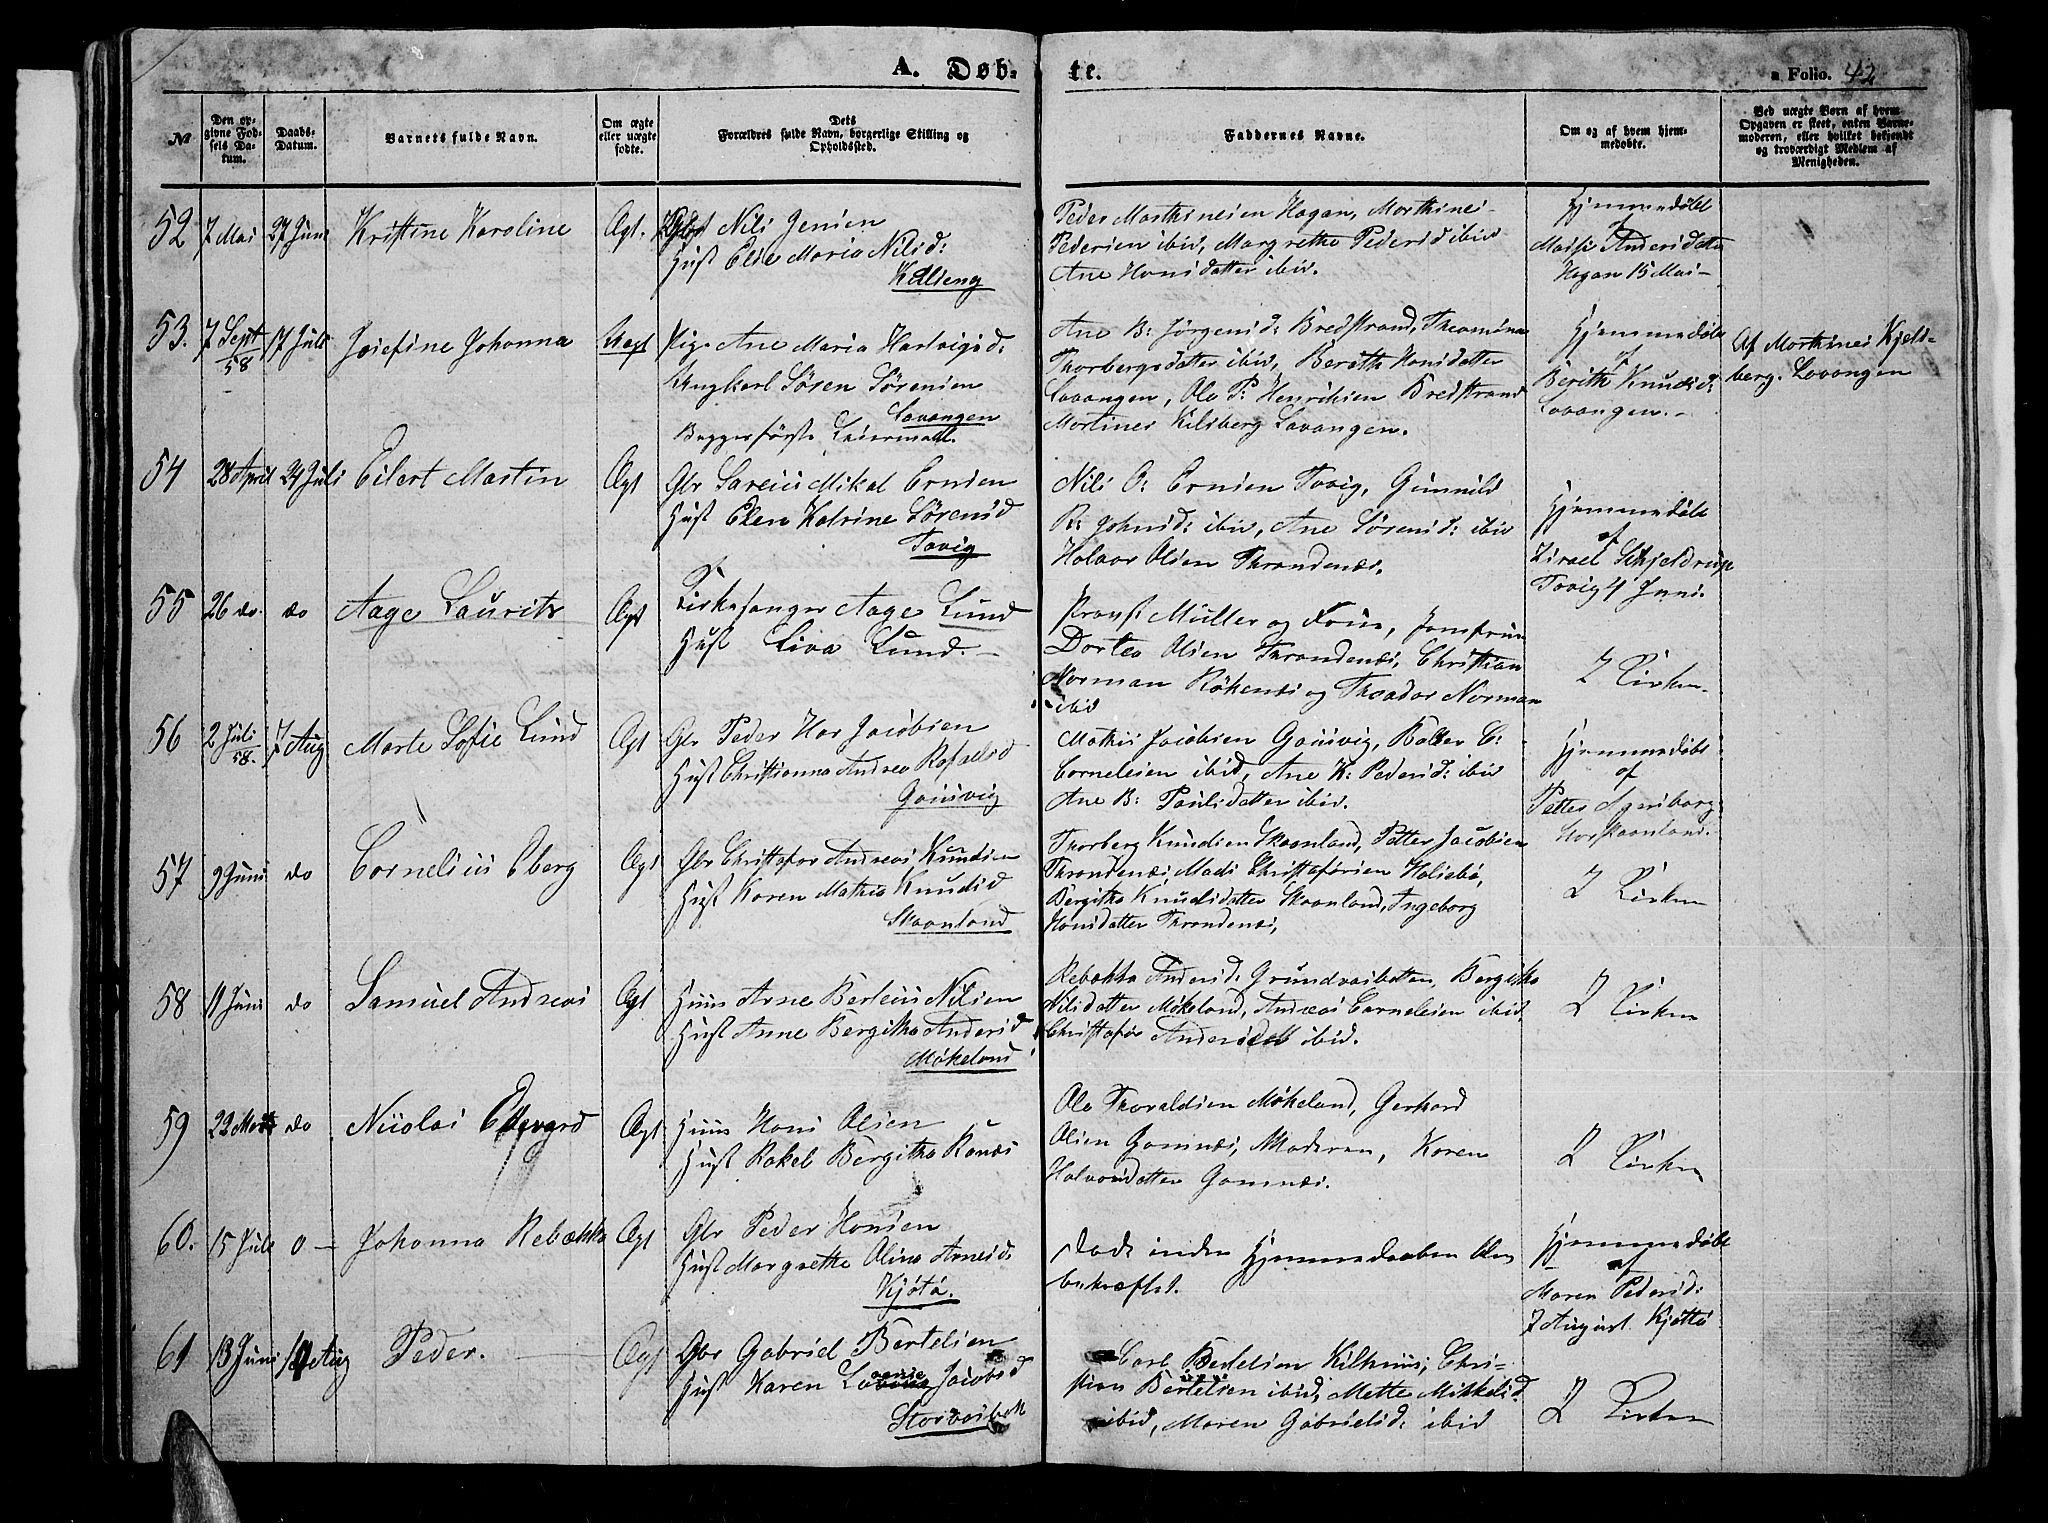 A. Døb-
te.
a Folio. 42
№
Den op-
givne Fød-
sels Da-
tum.
Daabs-
Datum.
Barnets fulde Navn.
Om ægte
eller uægte
fødte.
Dets
Forældres fulde Navn, borgerlige Stilling og
Opholdssted.
Faddernes Navne.
Om og af hvem hjem-
medøbte.
Ved uægte Børn af hvem
Opgaven er skeet, enten Barne-
moderen, eller hvilket bekjendt
og troværdigt Medlem af
Menigheden.
52 7 Mai 27 Juni Kristine Karoline Ægt. Nils Jensen
Hust Elie Maria Nilsd:
Kalseng
Peder Marthinesen Hagan, Marthines
Pedersen ibid, Margrethe Pedersd ibid
Ane Hansdatter ibid.
Hjemmedøbt
af
Andersdatter
Hagan 15 Mai
53. 7 Sept/58 17 Juli Josefine Johanna Uægt Pig. Ane Maria Hartvigsd:
Ungkarl Søren Sørensen
Lavangen
Begges første Leiermaal.
Ane B: Jørgensd: Bredstrand,
Thorbergsdatter ibid, Berith Hansdatter
Lavangen, Ole P: Henriksen Bredstrand
Martines Kilsberg Lavangen.
Hjemmedøbt
af
Berith Knudsd:
Lavangen.
Af Marthines Kjels-
berg. Lavangen
54 28 April 24 Juli Eilert Martin Ægt Gbr Mikal Ernsen
Hust Elen Katrine Sørensd
Tovig
Nils O: Ernsen Tovig, Gunnild
R: Johnsd: ibid, Ane Sørensd: ibid
Halvor Olsen Throndenæs.
Hjemmedøbt
af
Israel Schjeldrup
Tovig 4 Juni.
55 26 do. do Aage Laurits Ægt Kirkesanger Aage Lund
Hust Liva Lund.
Provst Müller og Frue, Jomfrue
Dortea Olsen Throndenæs, Christian
Norman Røkenæs og Theodor Norman
ibid
I Kirken
56 2 Juli/58. 7 Aug Marte Sofie Lund Ægt Gbr Peder Jacobsen
Hust Christianna Andrea Rafaelsd
Gausvig
Mathis Jacobsen Gausvig, C:
Cornelesen ibid, Ane K: Pedersd: ibid
Ane B: Paulsdatter ibid.
Hjemmedøbt
af
Petter
Storskaanland.
57 9 Juni do Cornelius Oberg Ægt Gbr Christofor Andreas Knudsen
Hust Karen Mathea Knudsd
Skaanland
Thorberg Knudsen Skaanland, Petter Jacobsen
Throndenæs, Mads Christoforsen Halsebø,
Bergitha Knudsdatter Skaanland, Ingeborg
Hansdatter Throndenæs,
I Kirken
58 11 Juni do Samuel Andreas Ægt Huus Arne Berteus Nilsen
Hust Anne Bergitha Andersd
Møkeland
Rebekka Andersd: Bergitha
Nilsdatter Møkeland, Andreas Cornelesen ibid,
Christofor ibid.
I Kirken
59 22 do Nicolai Edevard Ægt Huus Hans Olsen
Hust Rakel Bergitha
Ole Thoraldsen Møkeland, Gerhard
Olsen Gamnæs, Moderen, Karen
Halvorsdatter Gamnæs.
I Kirken
60. 15 Juli 0 — Johanna Rebækka Ægt Gbr Peder Hansen
Hust Margrethe Olina Arnesd:
Kjøtá.
Døde inden Hjemmedaaben blev
bekræftet.
Hjemmedøbt
af
Maren Pedersd:
7 August Kjøttá
61 13 Juni 14 Aug Peder. Ægt Gbr Gabriel Bertelsen
Hust Karen Jacobsd
Storvasbotn
Carl Bertelsen Kilhuus, Chri-
stian Bertelsen ibid, Mette Mikkelsd
ibid, Maren Gabrielsd: ibid
I Kirken